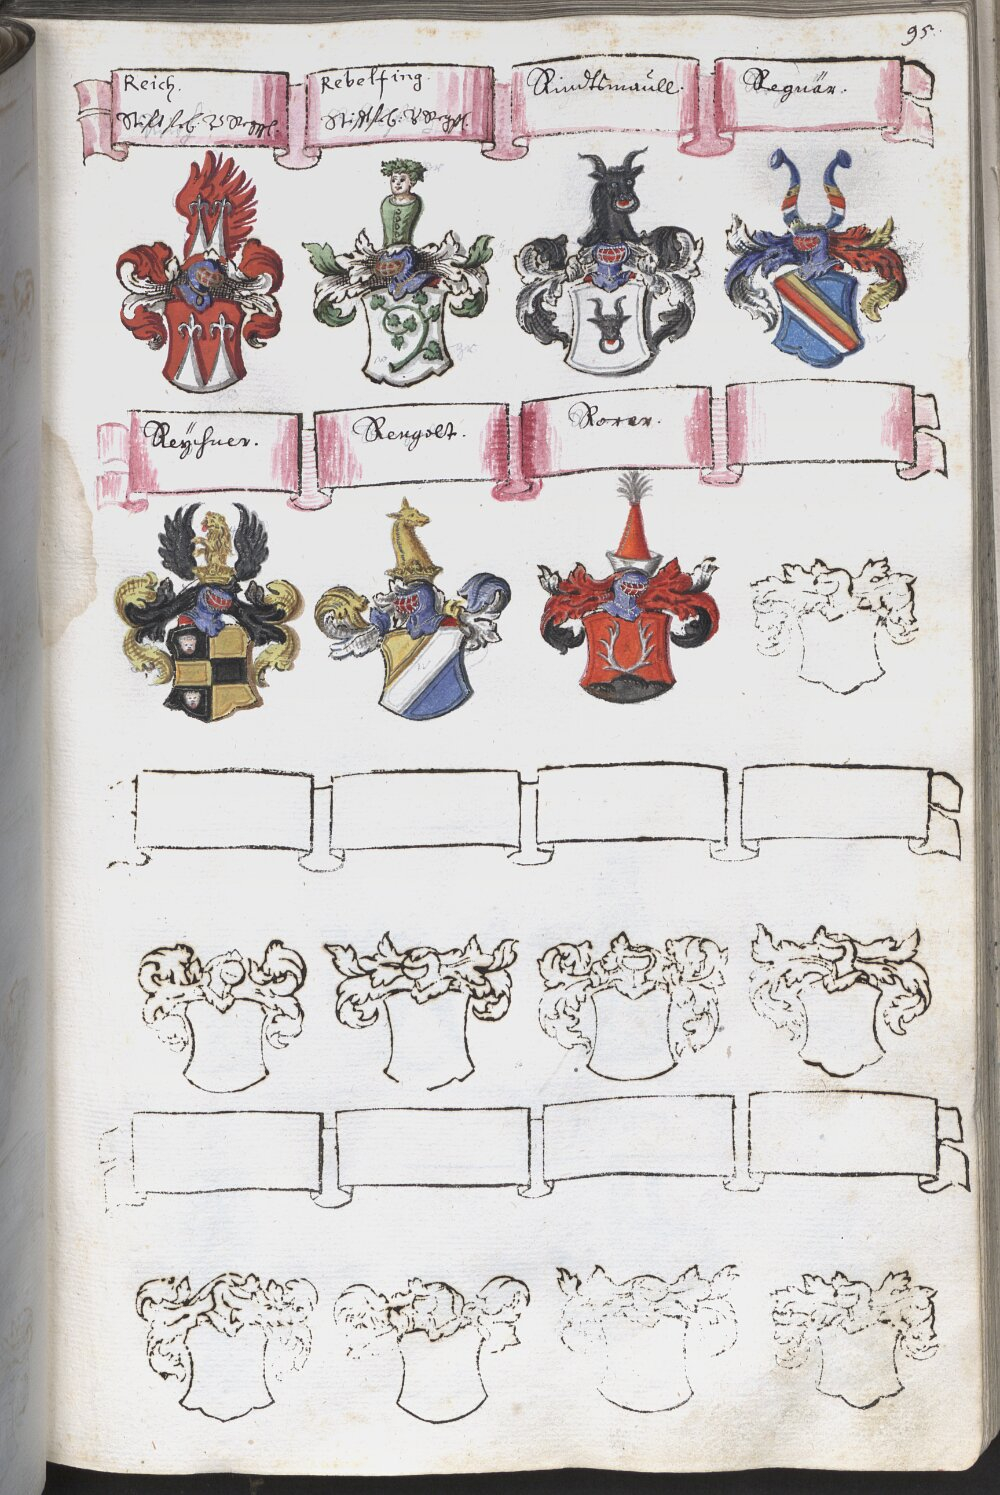 95.
Reich.
Rebelfing.
Rindtsmaull.
Regnär.
Reÿchner.
Rengolt.
Rorer.